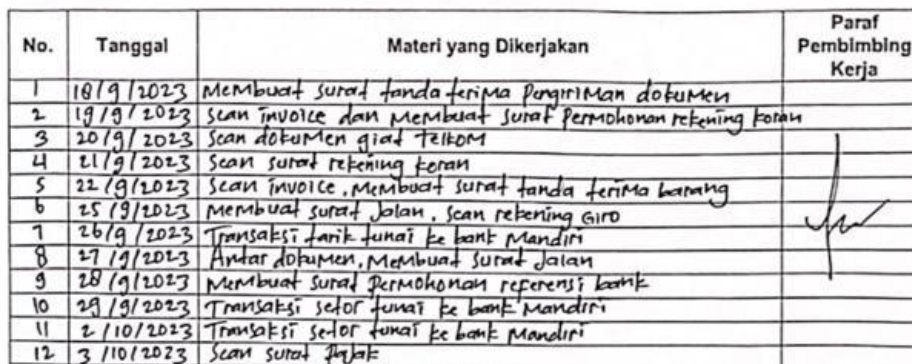 No. Tanggal Materi yang Dikerjakan Paraf Pembimbing Kerja
1 18/9/2023 Membuat surat tanda terima Pengiriman dokumen
2 19/9/2023 Scan invoice dan Membuat surat Permohonan rekening koran
3 20/9/2023 Scan dokumen giat Telkom
4 21/9/2023 Scan surat rekening koran
5 22/9/2023 Scan invoice, Membuat surat tanda terima barang
6 25/9/2023 Membuat surat Jalan, Scan rekening Giro
7 26/9/2023 Transaksi tarik tunai ke bank Mandiri
8 27/9/2023 Antar dokumen, Membuat surat Jalan
9 28/9/2023 Membuat surat Permohonan referensi bank
10 29/9/2023 Transaksi setor tunai ke bank Mandiri
11 2/10/2023 Transaksi setor tunai ke bank Mandiri
12 3/10/2023 Scan surat Pajak